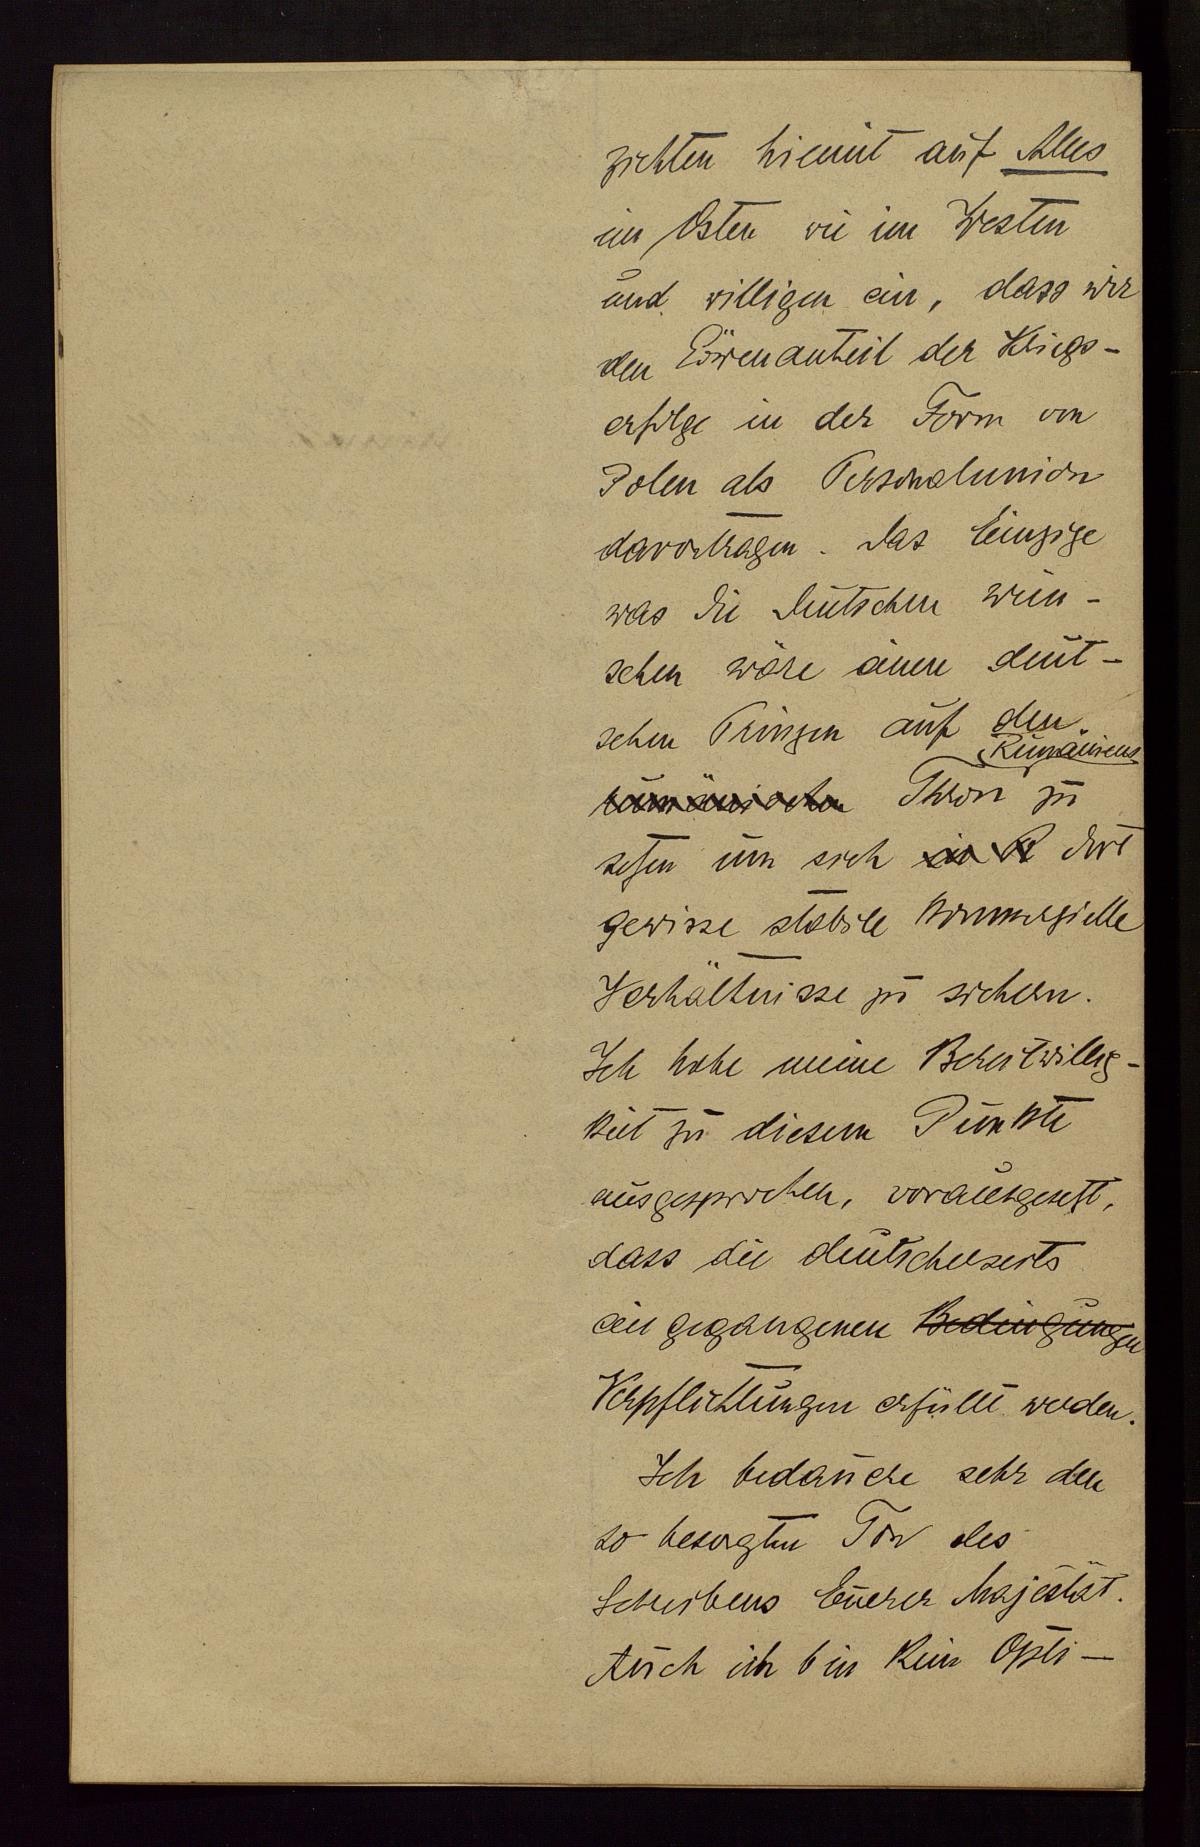 zichten hiemit auf Alles
im Osten wie im Westen
und willigen ein, dass wir
den Löwenanteil der Kriegs-
erfolge in der Form von
Polen als Personalunion
davontragen. Das Einzige
was die Deutschen wün-
schen wäre einen deut-
schen Prinzen auf den
Rumäniens
rumänischen Thron zu
setzen um sich in R dort
gewisse stabile kommerzielle
Verhältnisse zu sichern.
Ich habe meine Bereitwillig-
keit zu diesem Punkte
ausgesprochen, vorausgesetzt,
dass die deutscherseits
eingegangenen Bedingungen
Verpflichtungen erfüllt werden.
Ich bedauere sehr den
so besorgten Ton des
Schreibens Euerer Majestät.
Auch ich bin kein Opti-